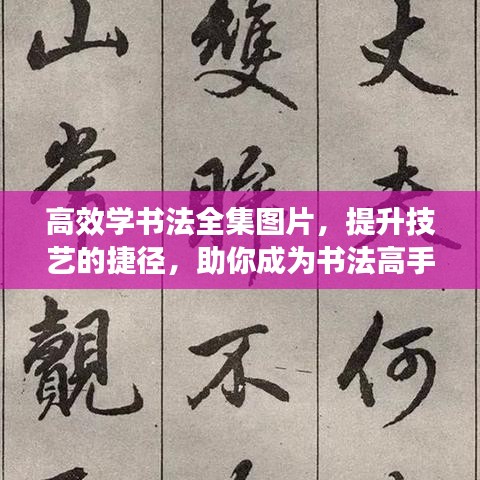 丈夫何
雙眸不
山常覿
高效学书法全集图片，提升技
艺的捷径，助你成为书法高手